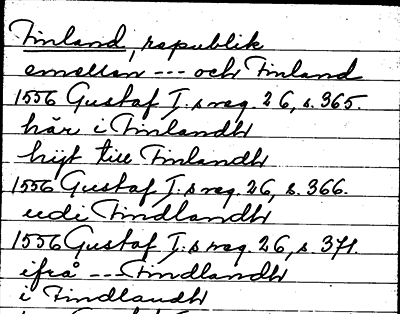 Finland, republik
emellan --- och Finland
1556 Gustaf I:s reg. 26, s. 365.
här i Finlandh
hijt till Finlandh
1556 Gustaf I:s reg. 26, s. 366.
udi Findlandh
1556 Gustaf I:s reg. 26, s. 371.
ifrå --- Findlandh
i Findlandh